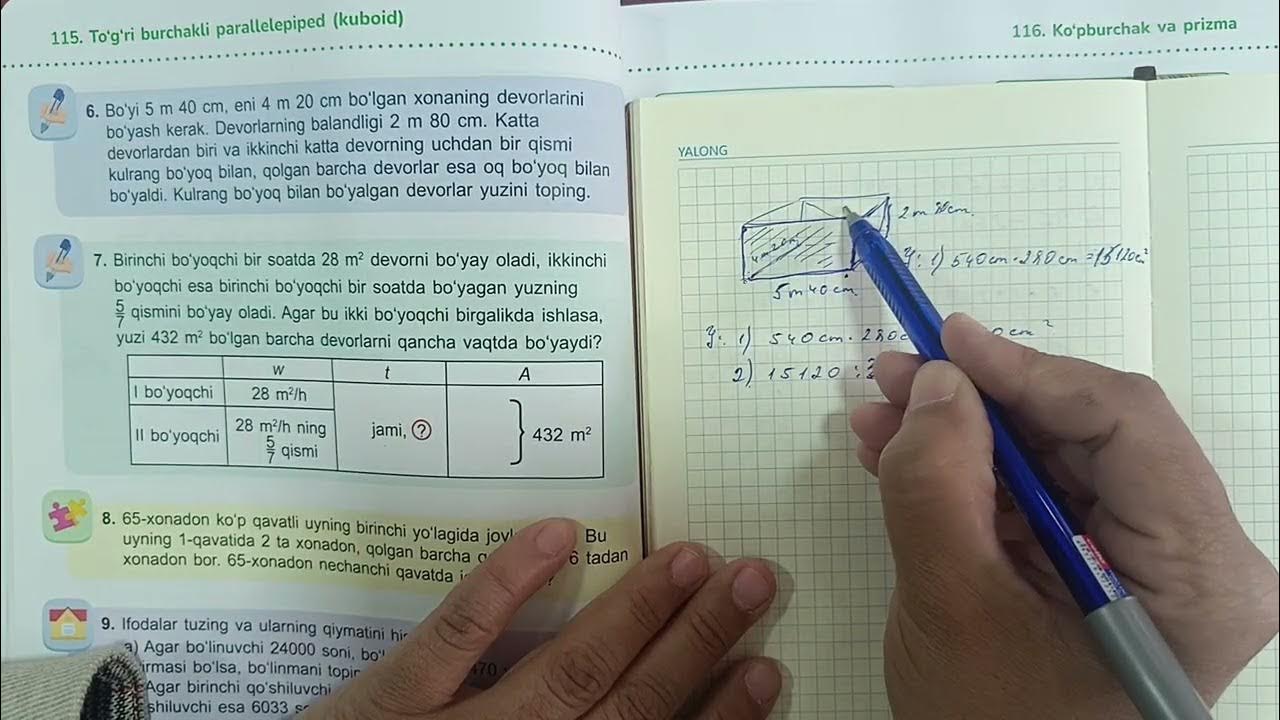 115. To'g'ri burchakli parallelepiped (kuboid)
6. Bo'yi 5 m 40 cm, eni 4 m 20 cm bo'lgan xonaning devorlarini
bo'yash kerak. Devorlarning balandligi 2 m 80 cm. Katta
devorlardan biri va ikkinchi katta devorning uchdan bir qismi
kulrang bo'yoq bilan, qolgan barcha devorlar esa oq bo'yoq bilan
bo'yaldi. Kulrang bo'yoq bilan bo'yalgan devorlar yuzini toping.
7. Birinchi bo'yoqchi bir soatda 28 m² devorni bo'yay oladi, ikkinchi
bo'yoqchi esa birinchi bo'yoqchi bir soatda bo'yagan yuzning
5/7 qismini bo'yay oladi. Agar bu ikki bo'yoqchi birgalikda ishlasa,
yuzi 432 m² bo'lgan barcha devorlarni qancha vaqtda bo'yaydi?
w t A
I bo'yoqchi 28 m²/h
II bo'yoqchi 28 m²/h ning
5/7 qismi
jami, ?
432 m²
8. 65-xonadon ko'p qavatli uyning birinchi yo'lagida Bu
uyning 1-qavatida 2 ta xonadon, qolgan barcha 6 tadan
xonadon bor. 65-xonadon nechanchi qavatda
9. Ifodalar tuzing va ularning qiymatini
a) Agar bo'linuvchi 24000 soni,
bo'lsa, bo'linmani
Agar birinchi qo'shiluvchi
esa 6033
116. Ko'pburchak va prizma
YALONG
5m 40cm
1) 540cm · 280cm = 15120cm²
1) 540cm · 280
2) 15120 :